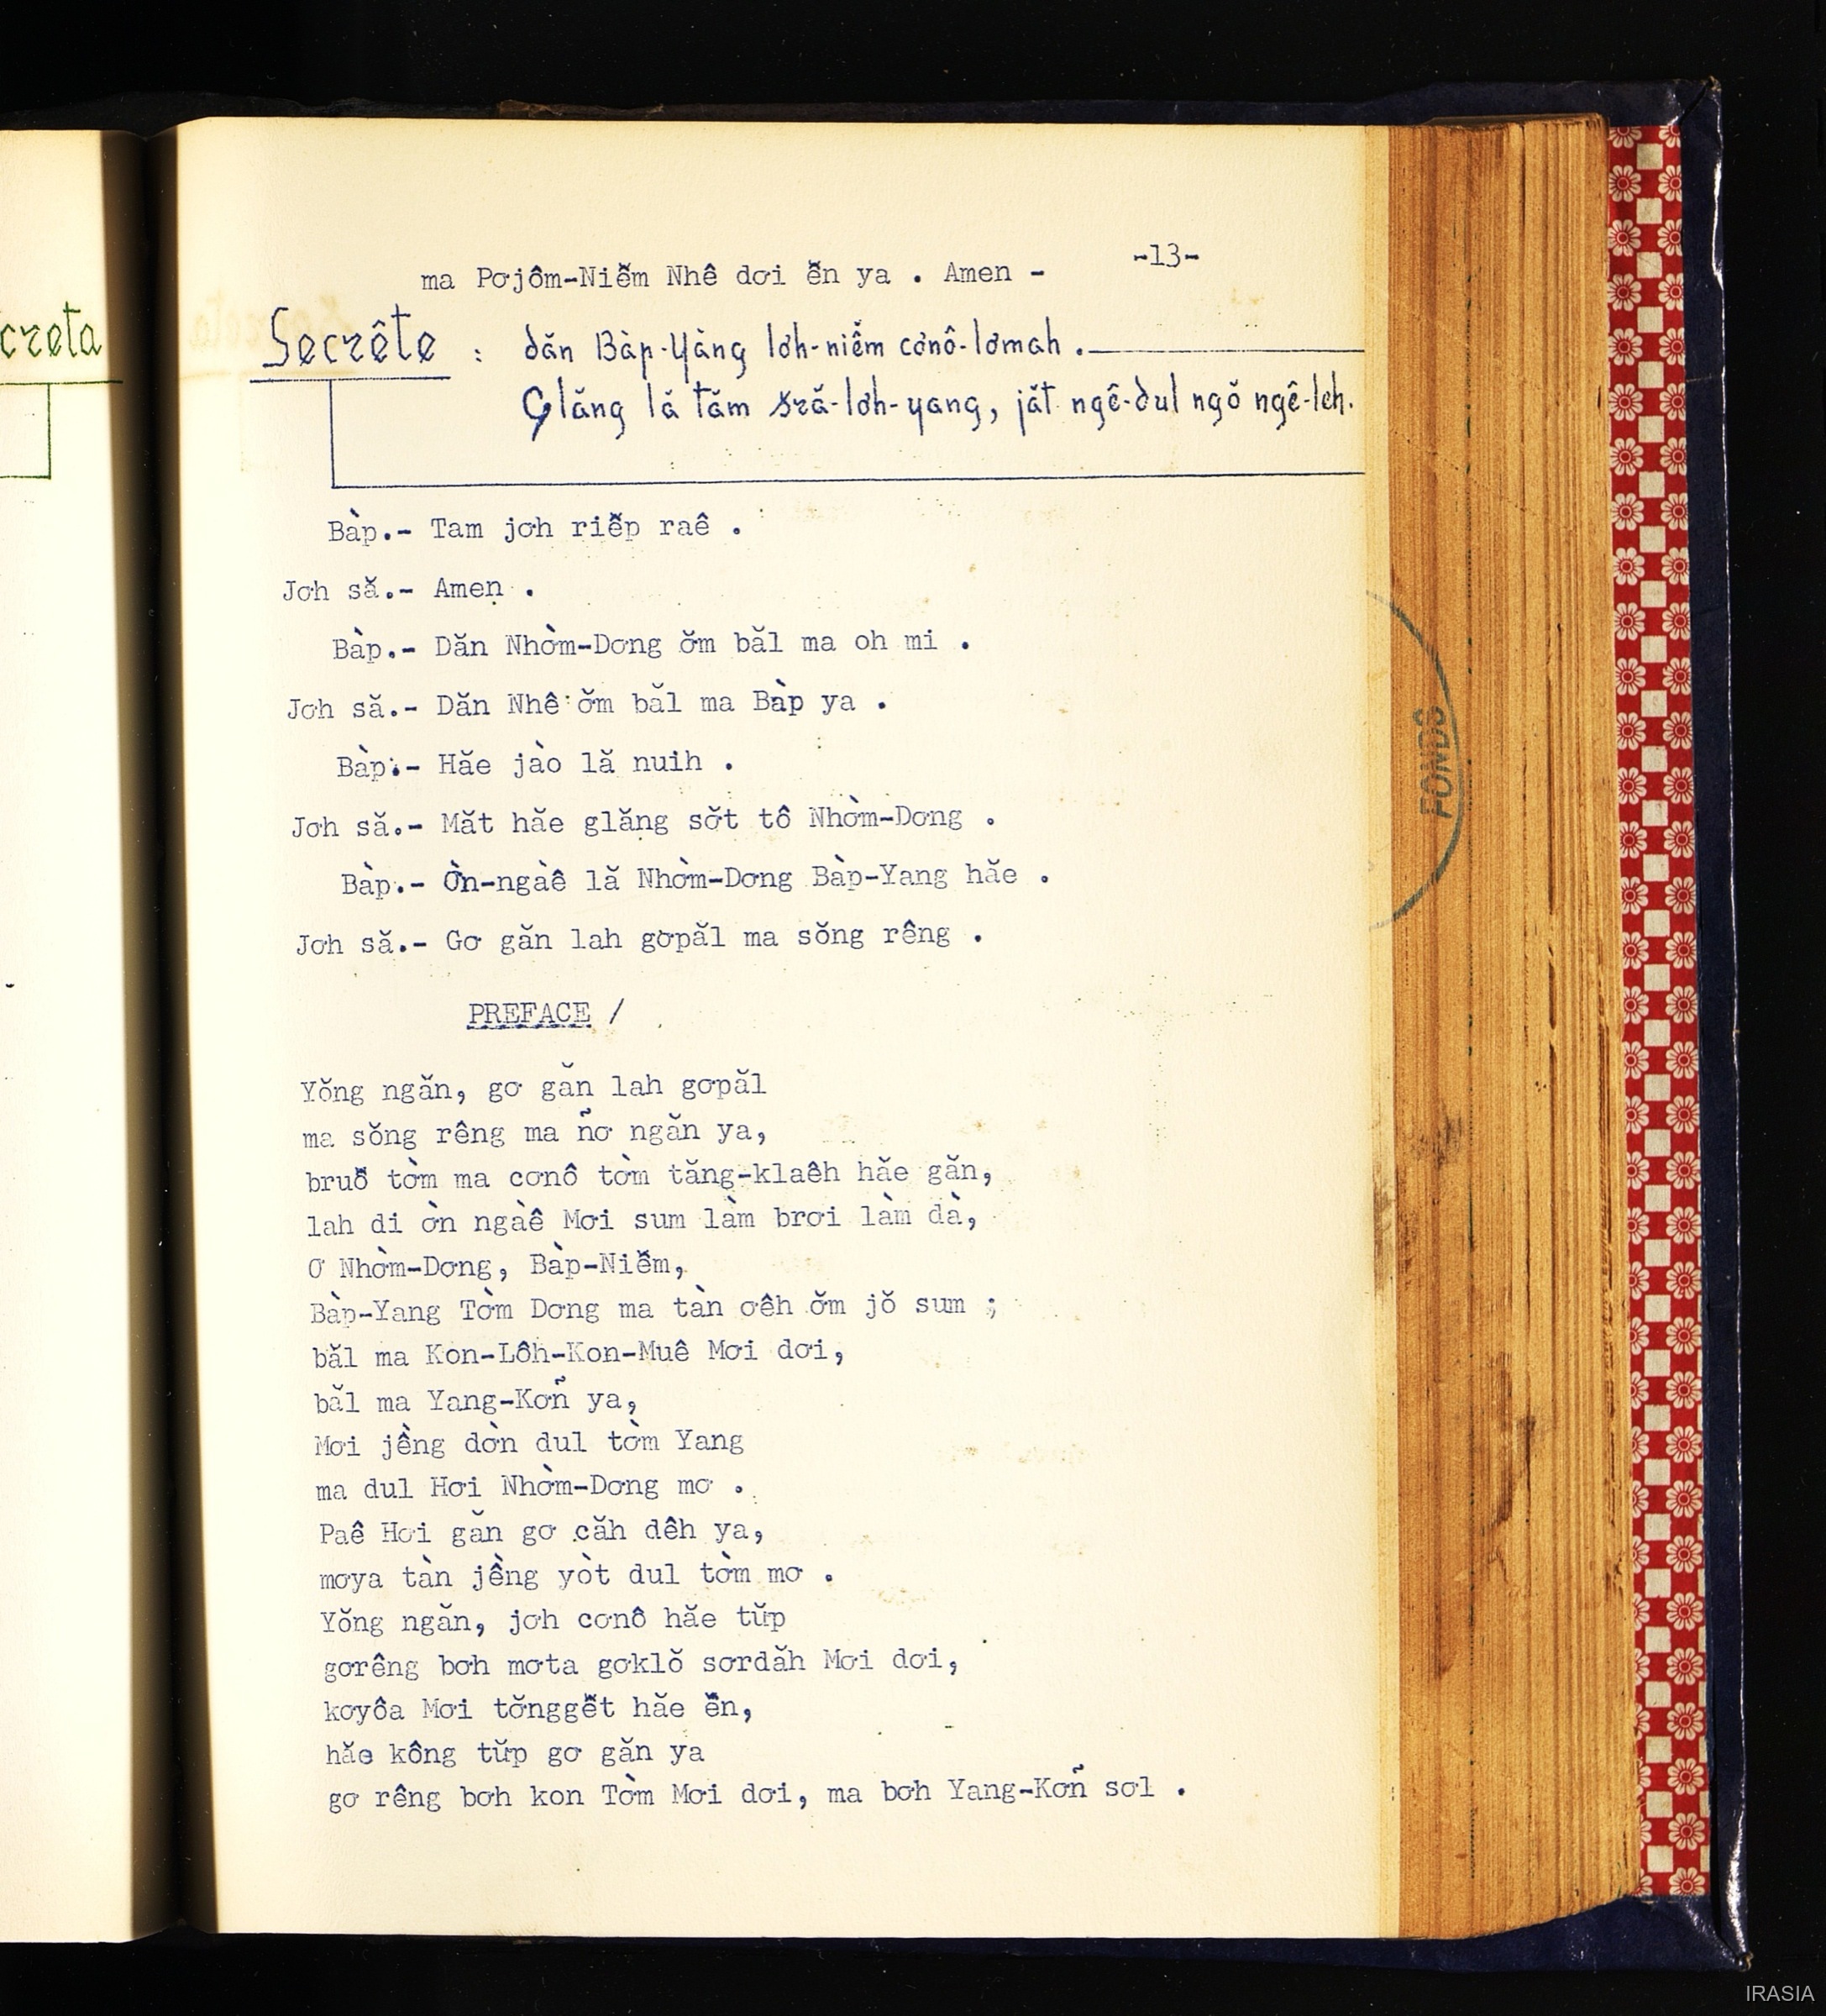 creta
-13-
ma Pơjôm-Niễm Nhê dơi ễn ya . Amen -
Secrête : dăn Bàp-Yàng lơh-niễm cơnô-lơmah .
Glăng lă tăm sră-lơh-yang, jăt ngê-dul ngŏ ngê-leh.
Bàp.- Tam jơh riễp raê .
Jơh să.- Amen .
Bàp.- Dăn Nhờm-Dơng ơ̆m băl ma oh mi .
Jơh să.- Dăn Nhê ơ̆m băl ma Bàp ya .
Bàp.- Hăe jào lă nuih .
Jơh să.- Măt hăe glăng sơ̆t tô Nhờm-Dơng .
Bàp.- Ờn-ngàê lă Nhờm-Dơng Bàp-Yang hăe .
Jơh să.- Gơ găn lah gơpăl ma sŏng rêng .
PREFACE /
Yŏng ngăn, gơ găn lah gơpăl
ma sŏng rêng ma ñơ ngăn ya,
bruỗ tờm ma cơnô tờm tăng-klaêh hăe găn,
lah di ờn ngàê Mơi sum làm brơi làm dà,
Ơ Nhờm-Dơng, Bàp-Niễm,
Bàp-Yang Tờm Dơng ma tàn ơêh ơ̆m jŏ sum ;
băl ma Kon-Lôh-Kon-Muê Mơi dơi,
băl ma Yang-Kơñ ya,
Mơi jềng dờn dul tờm Yang
ma dul Hơi Nhờm-Dơng mơ .
Paê Hơi găn gơ căh dêh ya,
mơya tàn jềng yòt dul tờm mơ .
Yŏng ngăn, jơh cơnô hăe tŭp
gơrêng bơh mơta gơklŏ sơrdăh Mơi dơi,
kơyôa Mơi tơ̆nggễt hăe ễn,
hăe kông tŭp gơ găn ya
gơ rêng bơh kon Tờm Mơi dơi, ma bơh Yang-Kơñ sơl .
FONDS
IRASIA